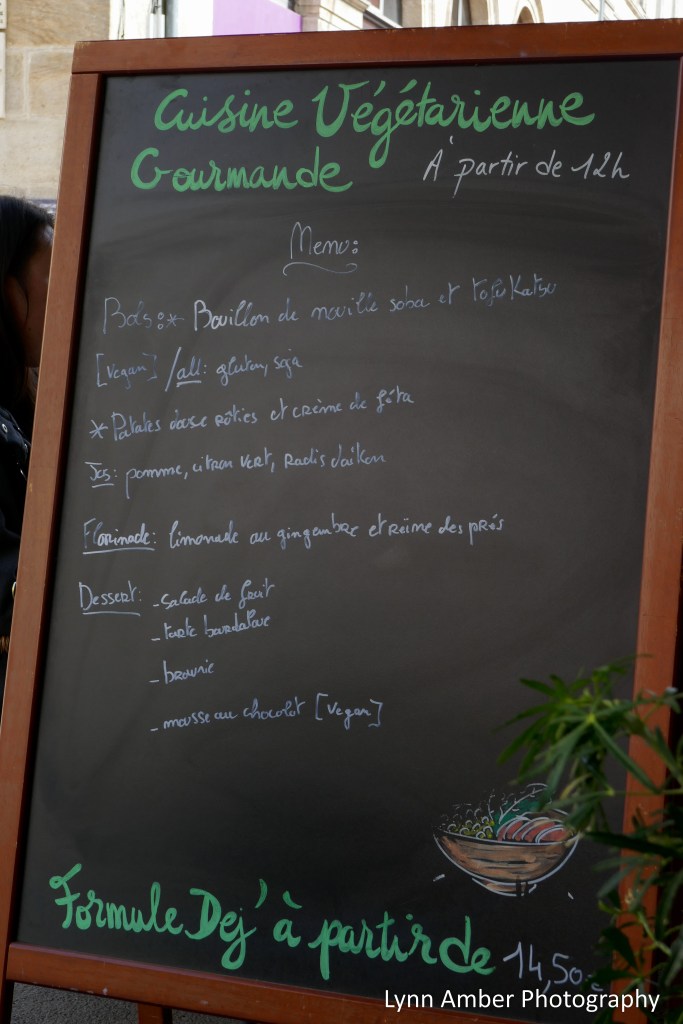 Cuisine Végétarienne
Gourmande À partir de 12h
Menu:
Bols:* Bouillon de nouille soba et tofu Katsu
[vegan] /all: gluten, soja
* Patates douse rôties et crème de féta
Jus: pomme, citron vert, Radis daïkon
Florinade: limonade au gingembre et reine des prés
Dessert: - salade de fruit
- tarte bourdaloue
- brownie
- mousse au chocolat [vegan]
Formule Dej' à partir de 14,50€
Lynn Amber Photography